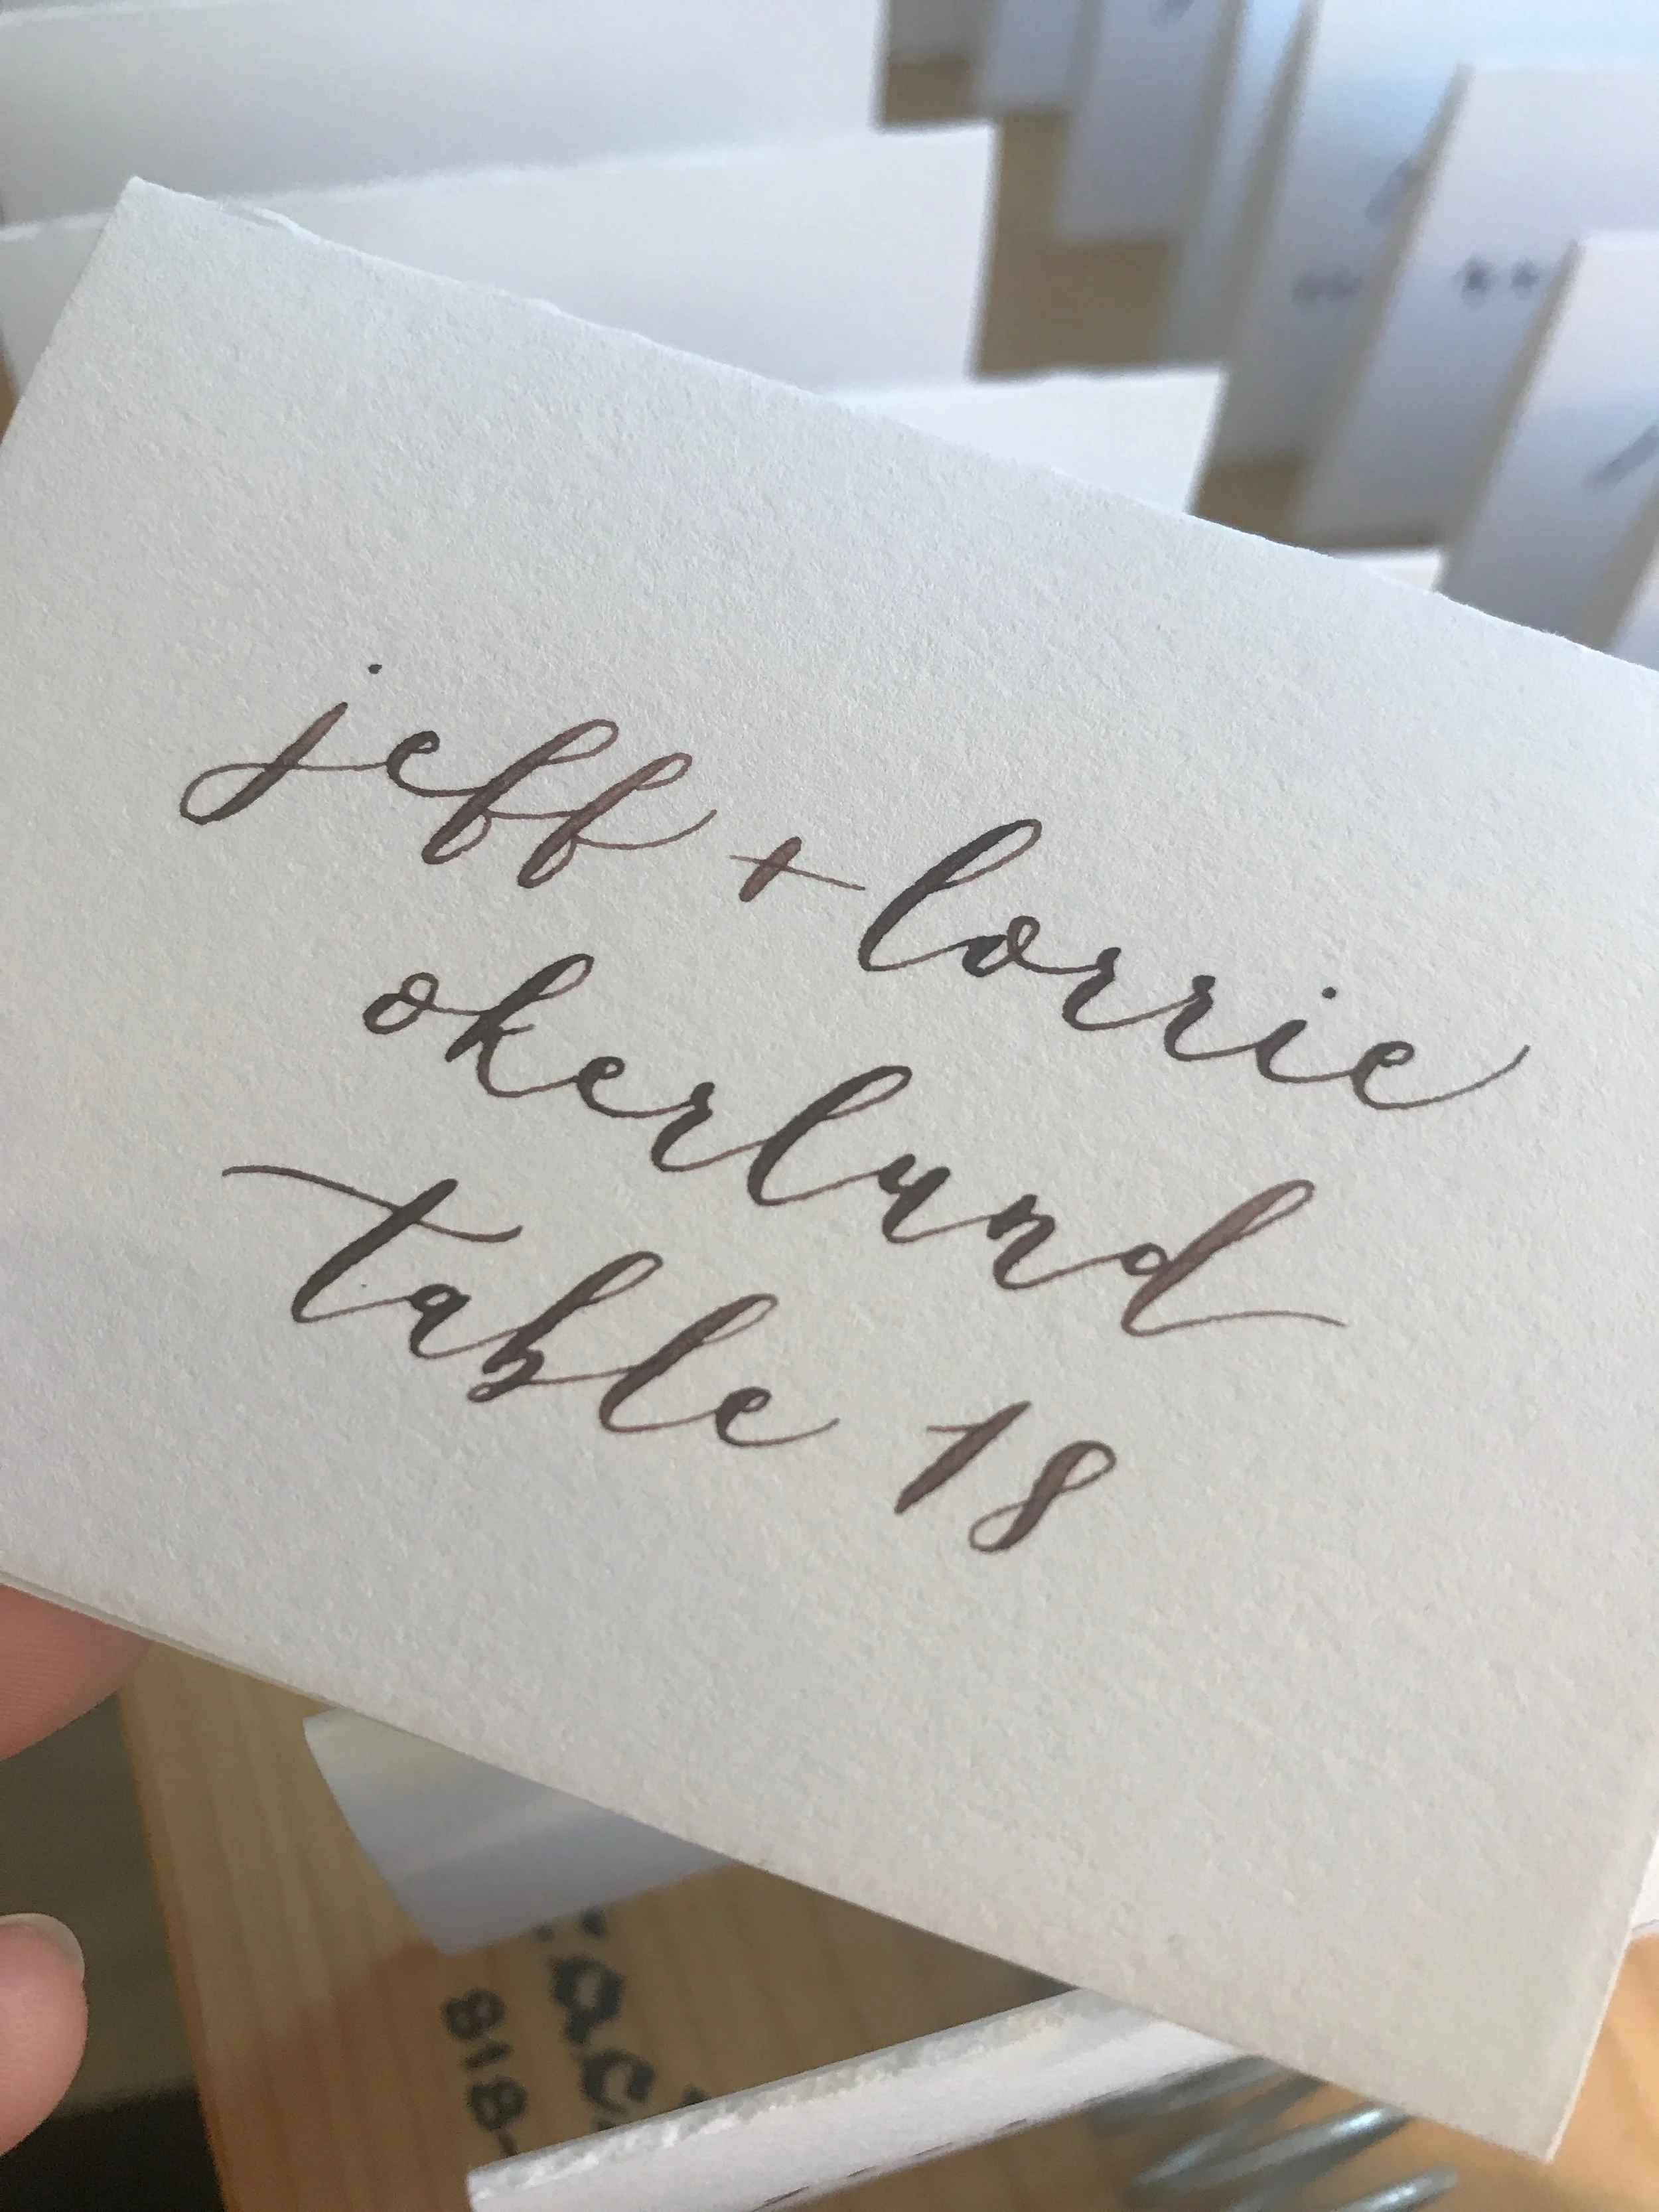 jeff + lorrie
okerland
table 18
818-